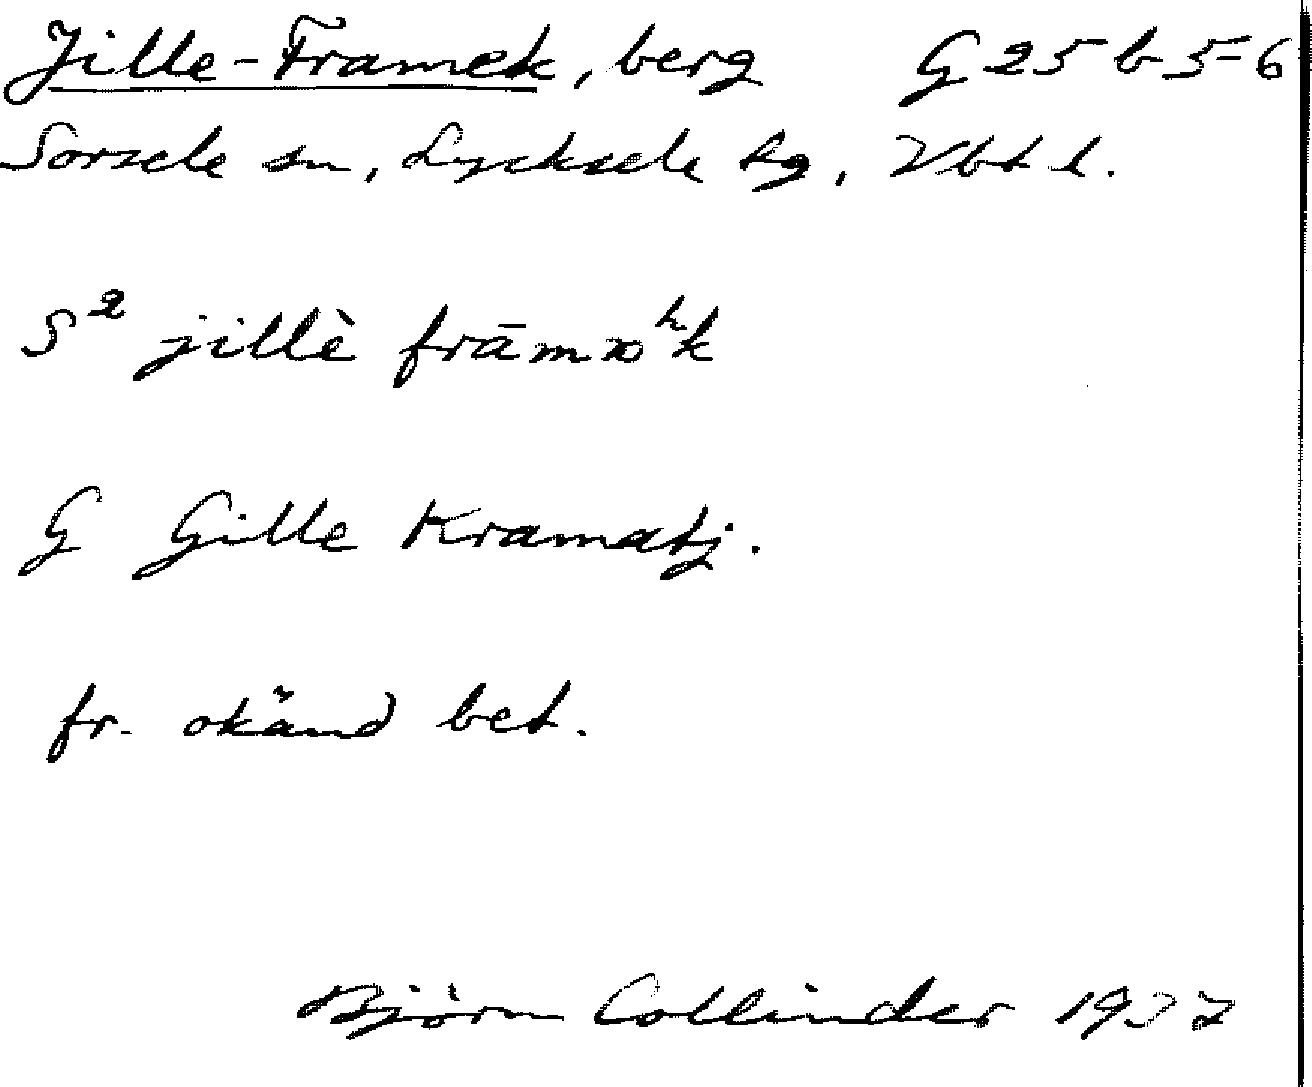 Jille-Framek, berg G 25 b 5-6
Sorsele sn, Lycksele tg, Vbt l.
S² jillè frāmɷʰk
G Gille Kramatj.
fr. okänd bet.
Björn Collinder 1937